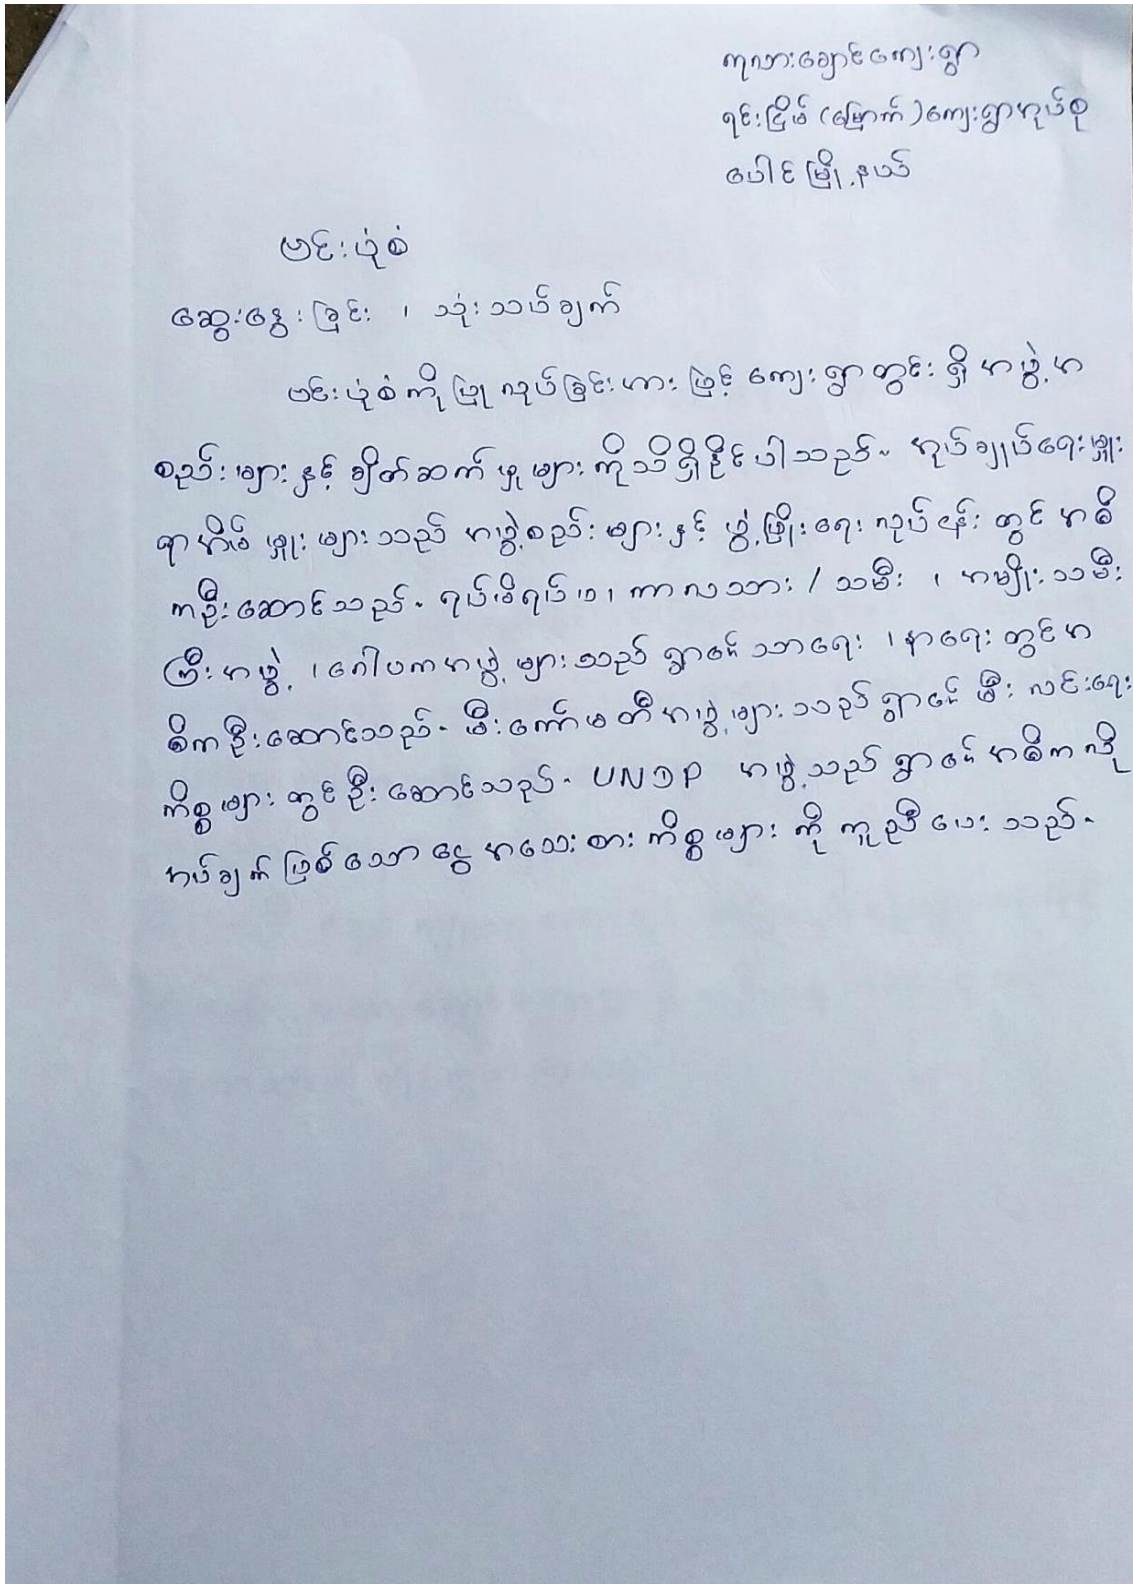 ကုလားချောင်ကျေးရွာ
ရင်းငြိမ် (မြောက်) ကျေးရွာအုပ်စု
ပေါင်မြို့နယ်
ဗင်းပုံစံ
ဆွေးနွေးခြင်း ၊ သုံးသပ်ချက်
ဗင်းပုံစံကိုပြုလုပ်ခြင်းအားဖြင့် ကျေးရွာတွင်းရှိ အဖွဲ့အ
စည်းများနှင့် ချိတ်ဆက်မှုများကိုသိရှိနိုင်ပါသည်။ အုပ်ချုပ်ရေးမှူး
ရာအိမ်မှူးများသည် အဖွဲ့စည်းများနှင့် ဖွံ့ဖြိုးရေးလုပ်ငန်းတွင် အဓိ
ကဦးဆောင်သည်။ ရပ်မိရပ်ဖ၊ ကာလသား / သမီး ၊ အမျိုးသမီး
ကြီးအဖွဲ့ ၊ ဂေါပကအဖွဲ့များသည် ရွာ၏ သာရေး ၊ နာရေးတွင်အ
ဓိကဦးဆောင်သည်။ မီးကော်မတီအဖွဲ့များသည် ရွာ၏ မီးလင်းရေး
ကိစ္စများတွင်ဦးဆောင်သည်။ UNDP အဖွဲ့သည် ရွာ၏ အဓိကလို
အပ်ချက်ဖြစ်သော ငွေအသေးစားကိစ္စများကို ကူညီပေးသည်။